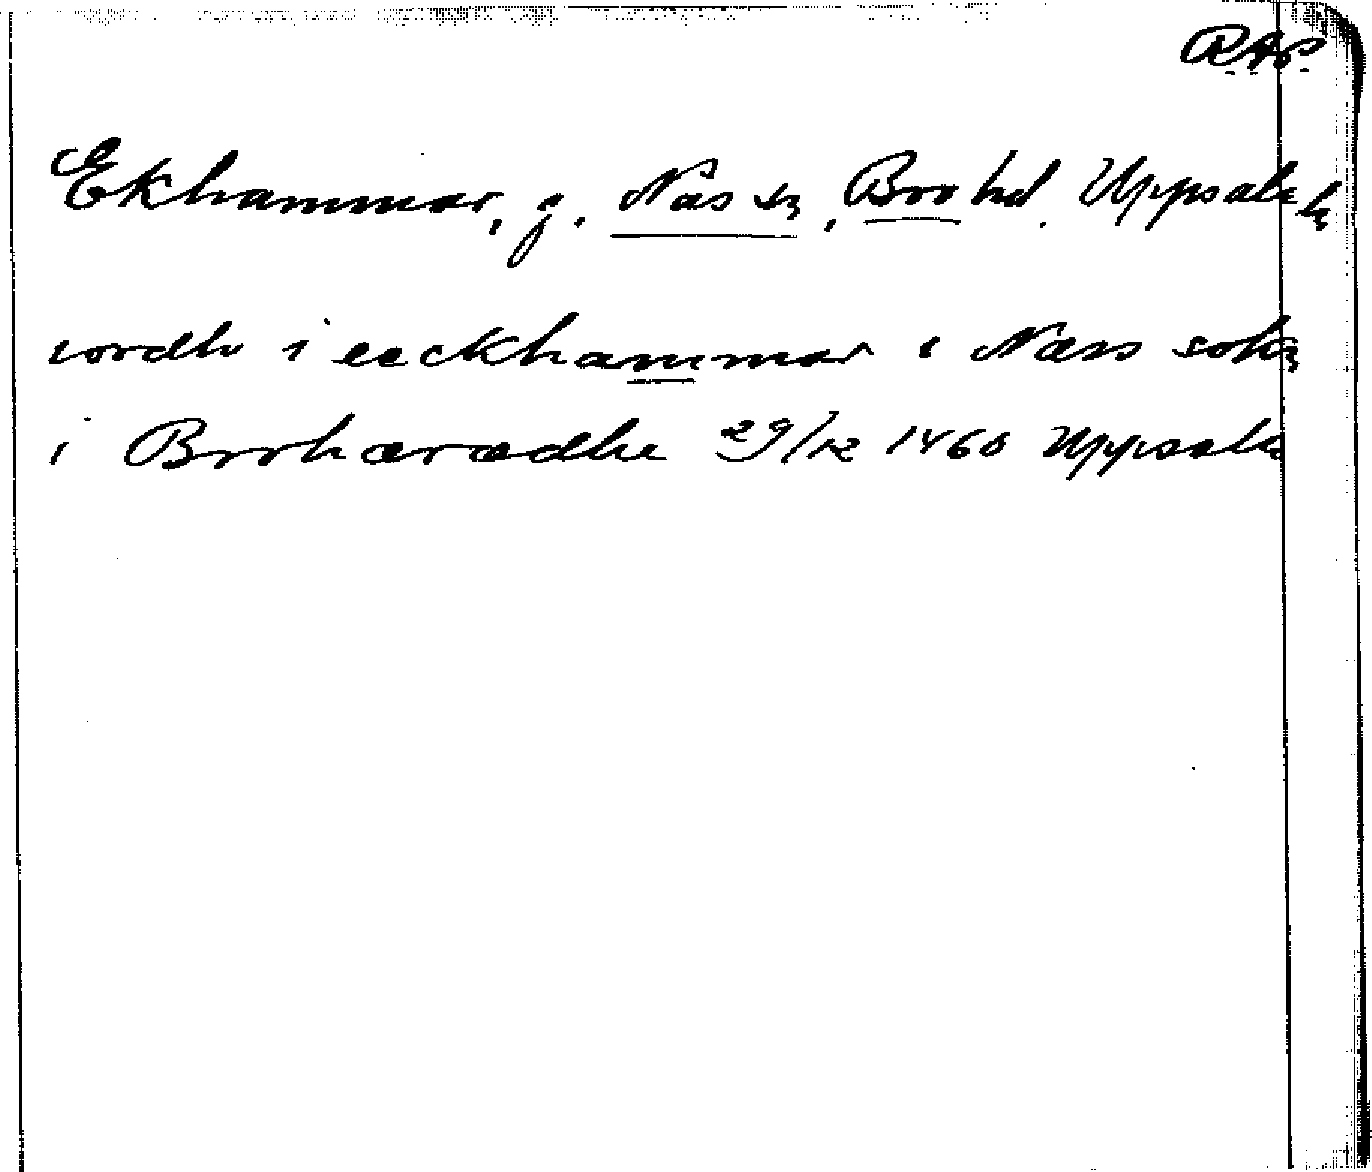 RAP.
Ekhammar, g. Näs sn, Bro hd. Uppsala l.
iordh i eeckhammar i Næss sokn
i Brohæradhe 29/12 1460 Uppsala